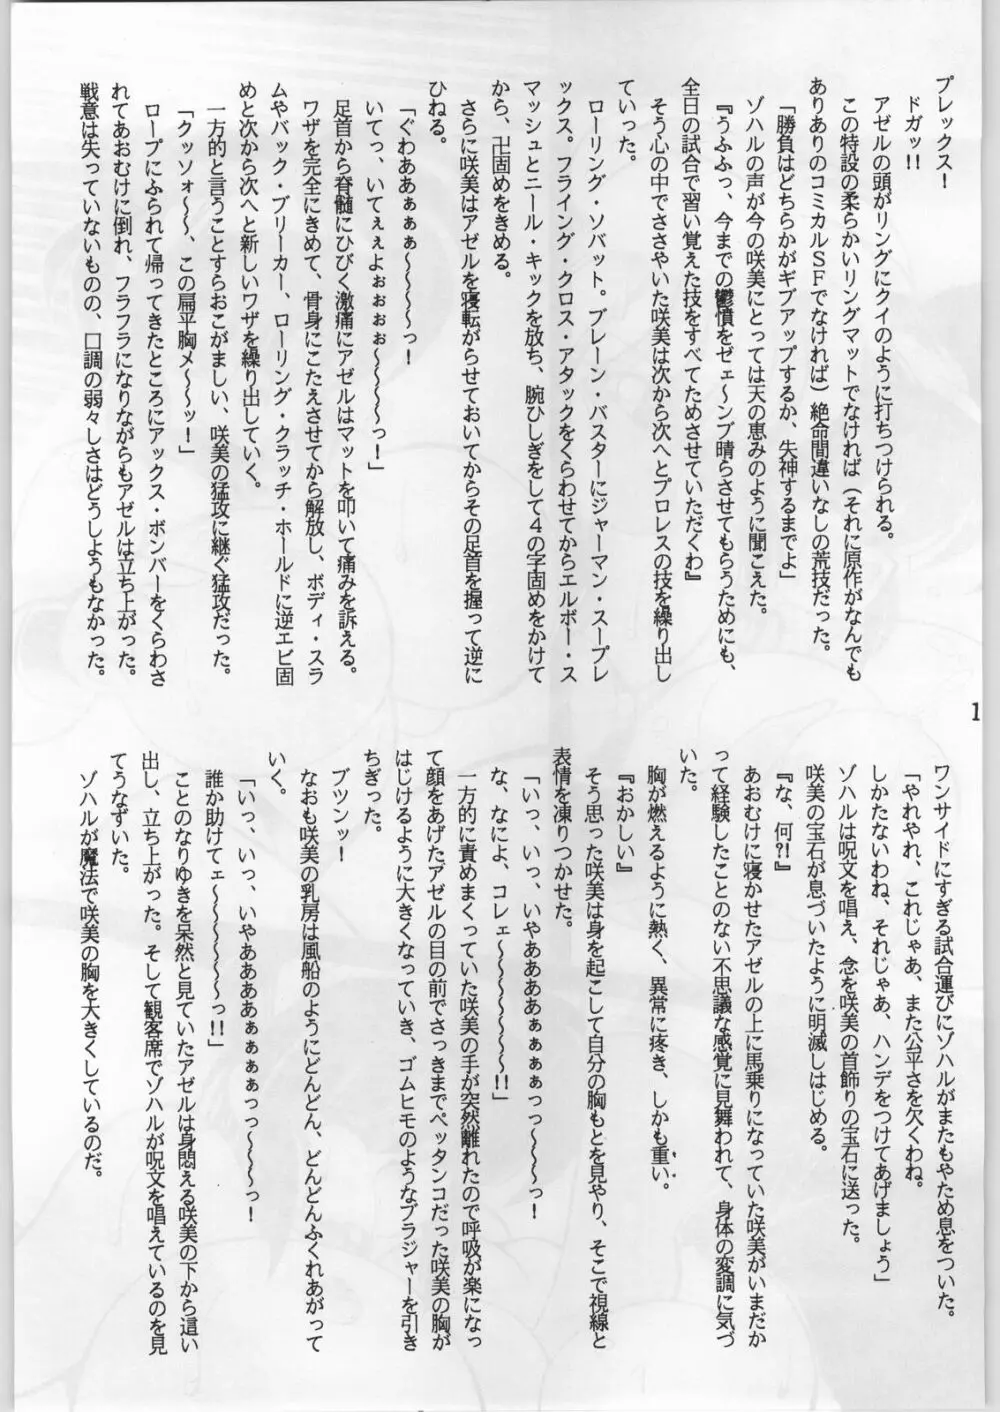 プレックス！
ドガッ!!
アゼルの頭がリングにクイのように打ちつけられる。
この特設の柔らかいリングマットでなければ（それに原作がなんでも
ありありのコミカルＳＦでなければ）絶命間違いなしの荒技だった。
「勝負はどちらかがギブアップするか、失神するまでよ」
ゾハルの声が今の咲美にとっては天の恵みのように聞こえた。
『うふふっ、今までの鬱憤をゼェ～ンブ晴らさせてもらうためにも、
全日の試合で習い覚えた技をすべてためさせていただくわ』
そう心の中でささやいた咲美は次から次へとプロレスの技を繰り出し
ていった。
ローリング・ソバット。ブレーン・バスターにジャーマン・スープレ
ックス。フライング・クロス・アタックをくらわせてからエルボー・ス
マッシュとニール・キックを放ち、腕ひしぎをして４の字固めをかけて
から、卍固めをきめる。
さらに咲美はアゼルを寝転がらせておいてからその足首を握って逆に
ひねる。
「ぐわああぁぁぁ～～～～っ！
いてっ、いてぇぇよぉぉぉぉ～～～～っ！」
足首から脊髄にひびく激痛にアゼルはマットを叩いて痛みを訴える。
ワザを完全にきめて、骨身にこたえさせてから解放し、ボディ・スラ
ムやバック・ブリーカー、ローリング・クラッチ・ホールドに逆エビ固
めと次から次へと新しいワザを繰り出していく。
一方的と言うことすらおこがましい、咲美の猛攻に継ぐ猛攻だった。
「クッソォ～～、この扁平胸メ～～ッ！」
ロープにふられて帰ってきたところにアックス・ボンバーをくらわさ
れてあおむけに倒れ、フラフラになりながらもアゼルは立ち上がった。
戦意は失っていないものの、口調の弱々しさはどうしようもなかった。
1
ワンサイドにすぎる試合運びにゾハルがまたもやため息をついた。
「やれやれ、これじゃあ、また公平さを欠くわね。
しかたないわね、それじゃあ、ハンデをつけてあげましょう」
ゾハルは呪文を唱え、念を咲美の首飾りの宝石に送った。
咲美の宝石が息づいたように明滅しはじめる。
『な、何?!』
あおむけに寝かせたアゼルの上に馬乗りになっていた咲美がいまだか
って経験したことのない不思議な感覚に見舞われて、身体の変調に気づ
いた。
胸が燃えるように熱く、異常に疼き、しかも重い。
『おかしい』
そう思った咲美は身を起こして自分の胸もとを見やり、そこで視線と
表情を凍りつかせた。
「いっ、いっ、いやああああぁぁぁぁっっ～～～っ！
な、なによ、コレェ～～～～～～～!!」
一方的に責めまくっていた咲美の手が突然離れたので呼吸が楽になっ
て顔をあげたアゼルの目の前でさっきまでペッタンコだった咲美の胸が
はじけるように大きくなっていき、ゴムヒモのようなブラジャーを引き
ちぎった。
ブツンッ！
なおも咲美の乳房は風船のようにどんどん、どんどんふくれあがって
いく。
「いっ、いっ、いやああああぁぁぁぁっっ～～～っ！
誰か助けてェ～～～～～～っ!!」
ことのなりゆきを呆然と見ていたアゼルは身悶える咲美の下から這い
出し、立ち上がった。そして観客席でゾハルが呪文を唱えているのを見
てうなずいた。
ゾハルが魔法で咲美の胸を大きくしているのだ。